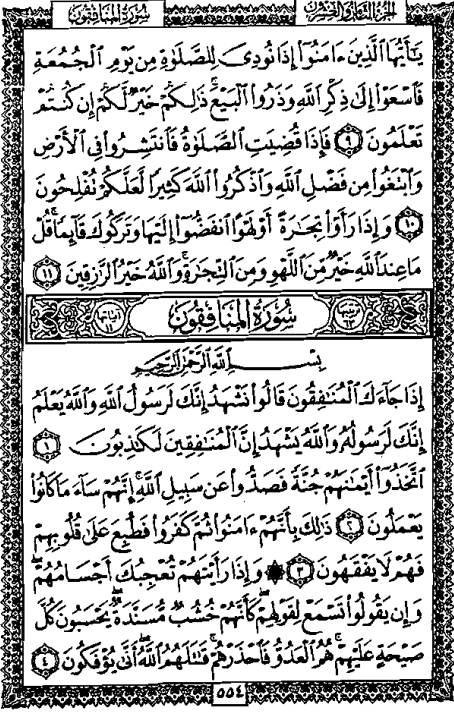 الجزء الثامن والعشرون
سورة المنافقون
يَٰٓأَيُّهَا ٱلَّذِينَ ءَامَنُوٓا۟ إِذَا نُودِىَ لِلصَّلَوٰةِ مِن يَوْمِ ٱلْجُمُعَةِ
فَٱسْعَوْا۟ إِلَىٰ ذِكْرِ ٱللَّهِ وَذَرُوا۟ ٱلْبَيْعَ ۚ ذَٰلِكُمْ خَيْرٌ لَّكُمْ إِن كُنتُمْ
تَعْلَمُونَ ٩ فَإِذَا قُضِيَتِ ٱلصَّلَوٰةُ فَٱنتَشِرُوا۟ فِى ٱلْأَرْضِ
وَٱبْتَغُوا۟ مِن فَضْلِ ٱللَّهِ وَٱذْكُرُوا۟ ٱللَّهَ كَثِيرًا لَّعَلَّكُمْ تُفْلِحُونَ
١٠ وَإِذَا رَأَوْا۟ تِجَٰرَةً أَوْ لَهْوًا ٱنفَضُّوٓا۟ إِلَيْهَا وَتَرَكُوكَ قَآئِمًا ۚ قُلْ
مَا عِندَ ٱللَّهِ خَيْرٌ مِّنَ ٱللَّهْوِ وَمِنَ ٱلتِّجَٰرَةِ ۚ وَٱللَّهُ خَيْرُ ٱلرَّٰزِقِينَ ١١
ترتيبها ٦٣ سُورَةُ المُنَافِقُون آياتها ١١
بِسْمِ ٱللَّهِ ٱلرَّحْمَٰنِ ٱلرَّحِيمِ
إِذَا جَآءَكَ ٱلْمُنَٰفِقُونَ قَالُوا۟ نَشْهَدُ إِنَّكَ لَرَسُولُ ٱللَّهِ ۗ وَٱللَّهُ يَعْلَمُ
إِنَّكَ لَرَسُولُهُۥ وَٱللَّهُ يَشْهَدُ إِنَّ ٱلْمُنَٰفِقِينَ لَكَٰذِبُونَ ١
ٱتَّخَذُوٓا۟ أَيْمَٰنَهُمْ جُنَّةً فَصَدُّوا۟ عَن سَبِيلِ ٱللَّهِ ۚ إِنَّهُمْ سَآءَ مَا كَانُوا۟
يَعْمَلُونَ ٢ ذَٰلِكَ بِأَنَّهُمْ ءَامَنُوا۟ ثُمَّ كَفَرُوا۟ فَطُبِعَ عَلَىٰ قُلُوبِهِمْ
فَهُمْ لَا يَفْقَهُونَ ٣ ۞ وَإِذَا رَأَيْتَهُمْ تُعْجِبُكَ أَجْسَامُهُمْ ۖ
وَإِن يَقُولُوا۟ تَسْمَعْ لِقَوْلِهِمْ ۖ كَأَنَّهُمْ خُشُبٌ مُّسَنَّدَةٌ ۖ يَحْسَبُونَ كُلَّ
صَيْحَةٍ عَلَيْهِمْ ۚ هُمُ ٱلْعَدُوُّ فَٱحْذَرْهُمْ ۚ قَٰتَلَهُمُ ٱللَّهُ ۖ أَنَّىٰ يُؤْفَكُونَ ٤
٥٥٤